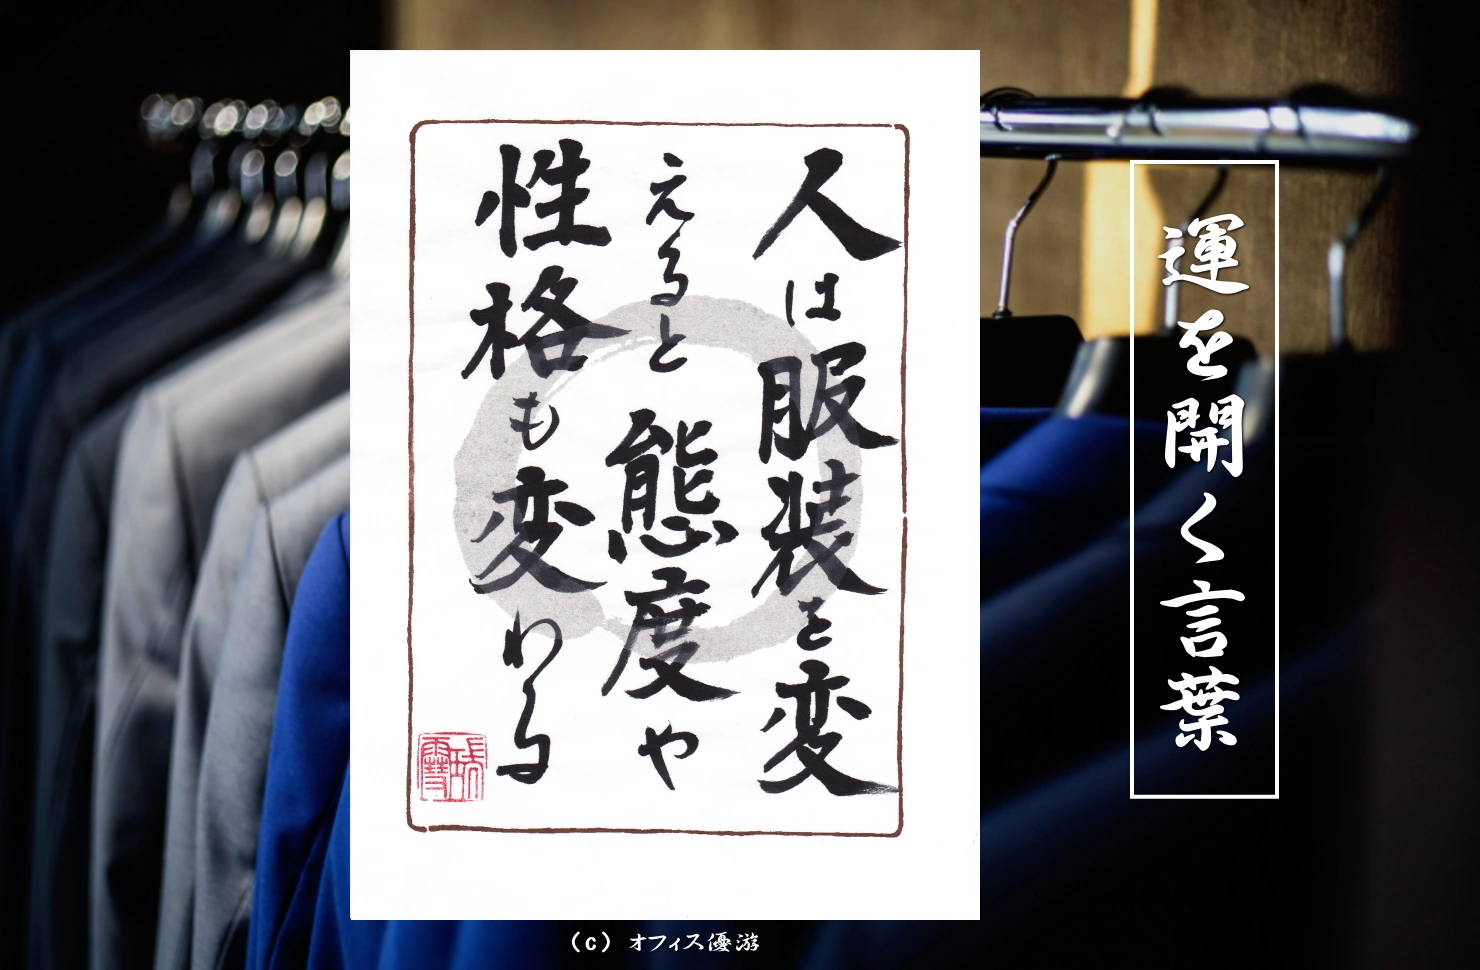 人は服装を変
えると態度や
性格も変わる
運を開く言葉
(c) オフィス優游